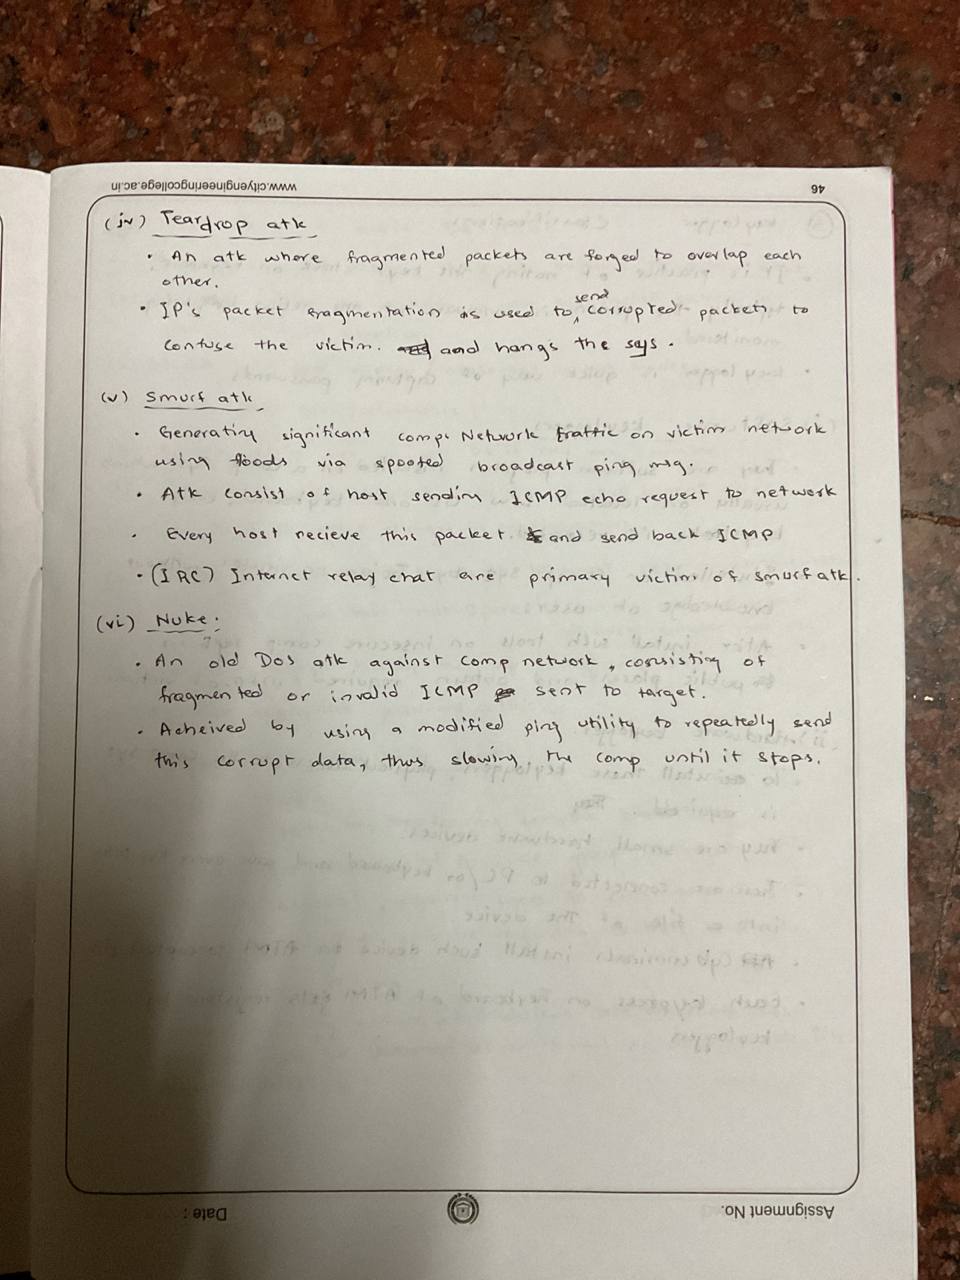 www.cityengineeringcollege.ac.in
46
(iv) Teardrop atk
• An atk where fragmented packets are forged to overlap each
other.
• IP's packet fragmentation is used to send corrupted packets to
confuse the victim. and hangs the sys.
(v) Smurf atk
• Generating significant comp. Network traffic on victim network
using floods via spoofed broadcast ping msg.
• Atk consist of host sending ICMP echo request to network
• Every host recieve this packet & and send back ICMP
• (IRC) Internet relay chat are primary victim of smurf atk.
(vi) Nuke:
• An old DoS atk against comp network, consisting of
fragmented or invalid ICMP sent to target.
• Acheived by using a modified ping utility to repeatedly send
this corrupt data, thus slowing the comp until it stops.
Date :
Assignment No.